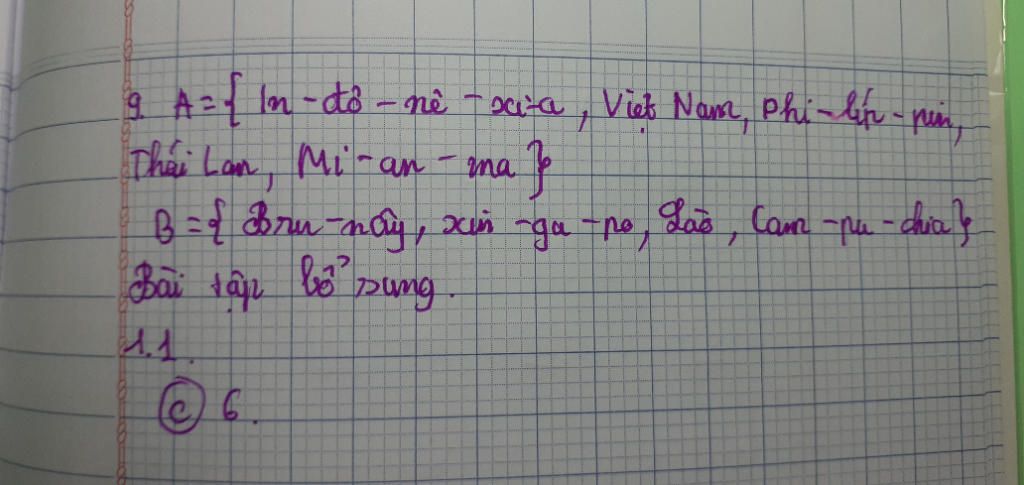 9. A = { In - đô - nê - xi-a, Việt Nam, Phi - líp - pin,
Thái Lan, Mi - an - ma }
B = { Bru - nây, xin - ga - po, Lào, Cam - pu - chia }
Bài tập bổ sung.
1.1.
C 6.